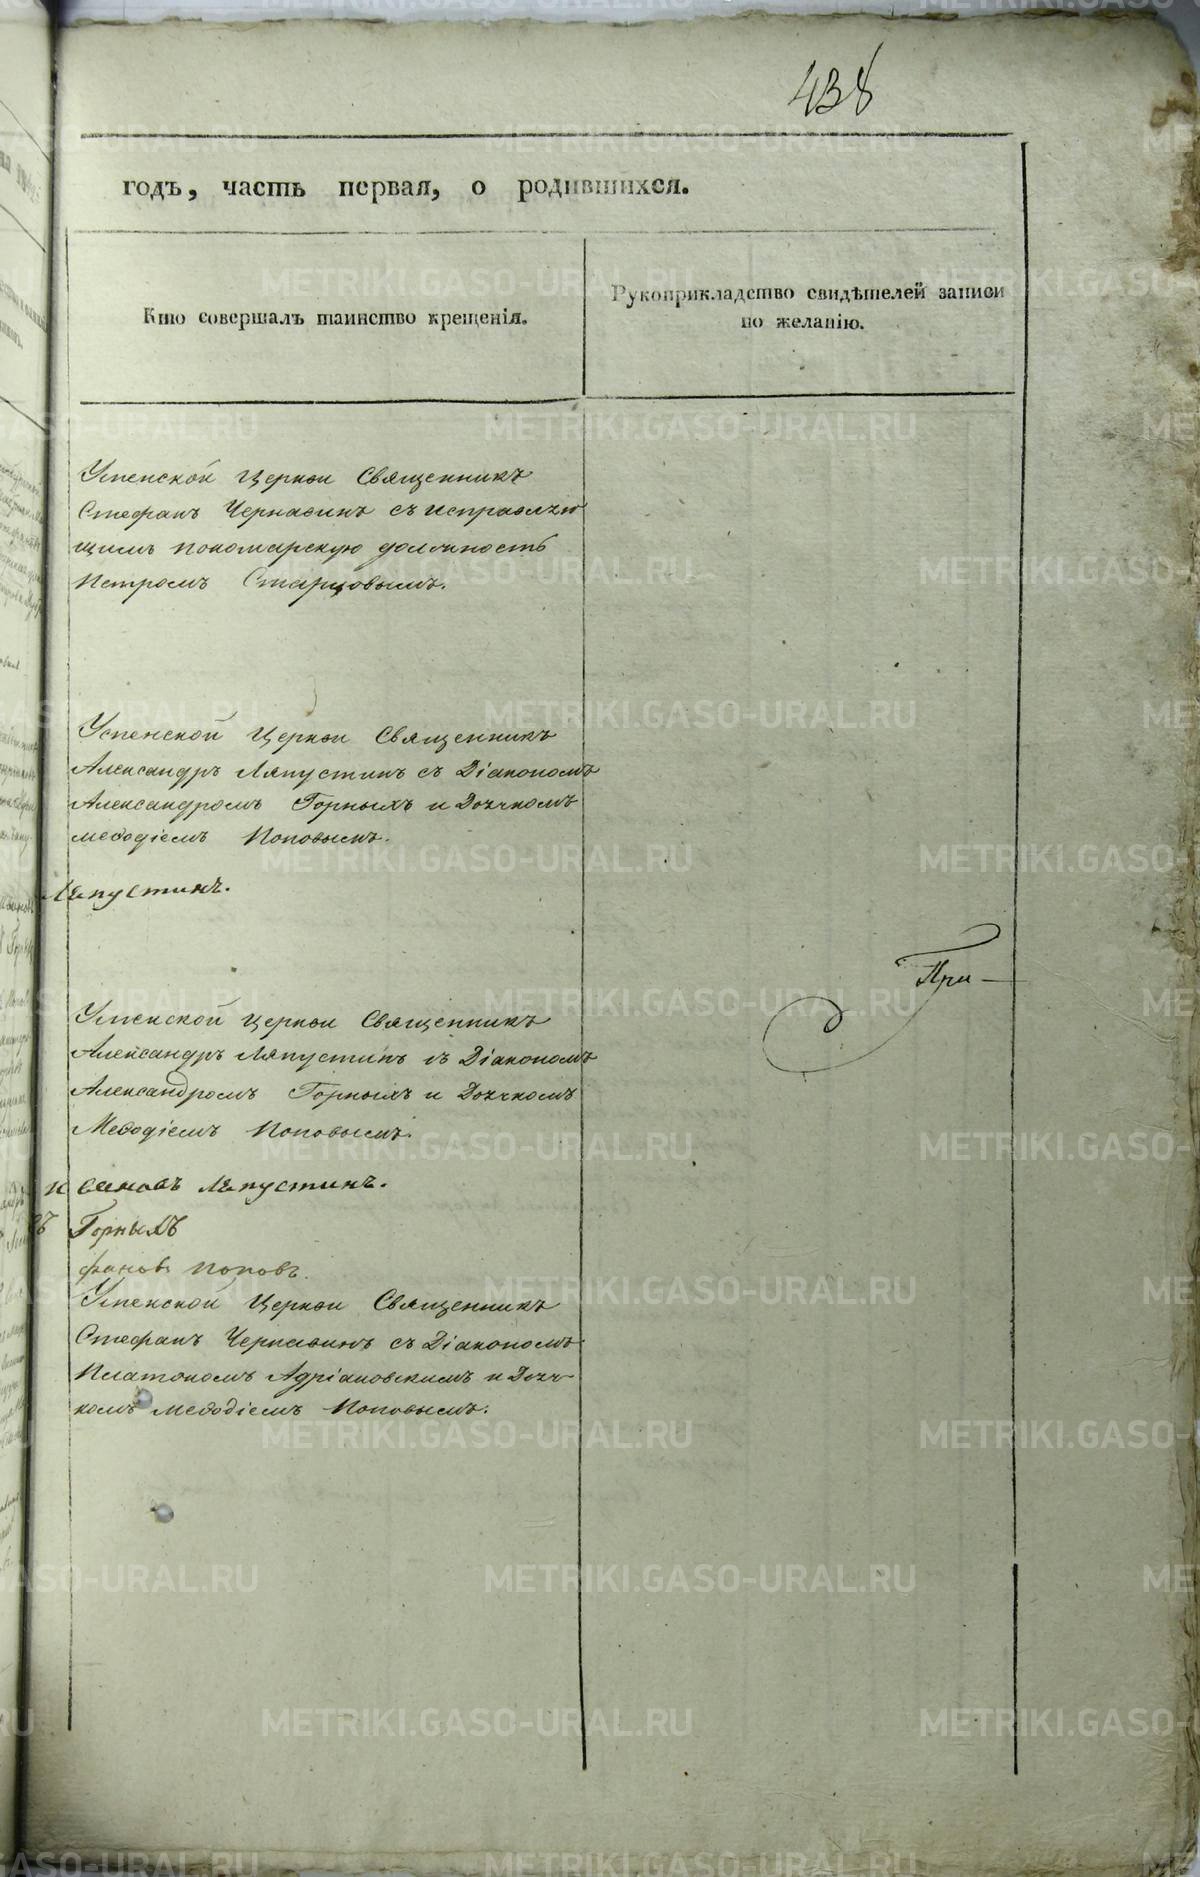 438
годъ, часть первая, о родившихся.
Кто совершалъ таинство крещенія.
Рукоприкладство свидѣтелей записи
по желанію.
Успенской Церкви Священникъ
Стефанъ Чернавинъ съ исправляю
щимъ пономарскую должность
Петромъ Старцовымъ.
Успенской Церкви Священникъ
Александръ Ляпустинъ съ Діакономъ
Александромъ Горныхъ и Дьячкомъ
Меѳодіемъ Поповымъ.
Ляпустинъ.
При-
Успенской Церкви Священникъ
Александръ Ляпустинъ съ Діакономъ
Александромъ Горныхъ и Дьячкомъ
Меѳодіемъ Поповымъ.
Ляпустинъ.
Горныхъ
Поповъ.
Успенской Церкви Священникъ
Стефанъ Чернавинъ съ Діакономъ
Платономъ Адріановскимъ и Дьяч-
комъ Меѳодіемъ Поповымъ.
METRIKI.GASO-URAL.RU